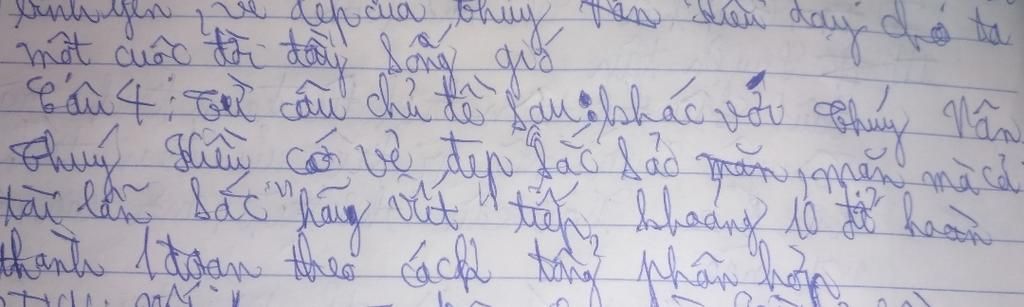 bình yên, vẻ đẹp của Thúy Vân Kiều dạy cho ta
một cuộc đời đầy sống gió
Câu 4: Từ câu chủ đề sau: khác với Thúy Vân
Thuý Kiều có vẻ đẹp sắc sảo mặn, mặn mà cả
tài lẫn sắc" hãy viết tiếp khoảng 10 để hoàn
thành 1 đoạn theo cách tổng phân hợp